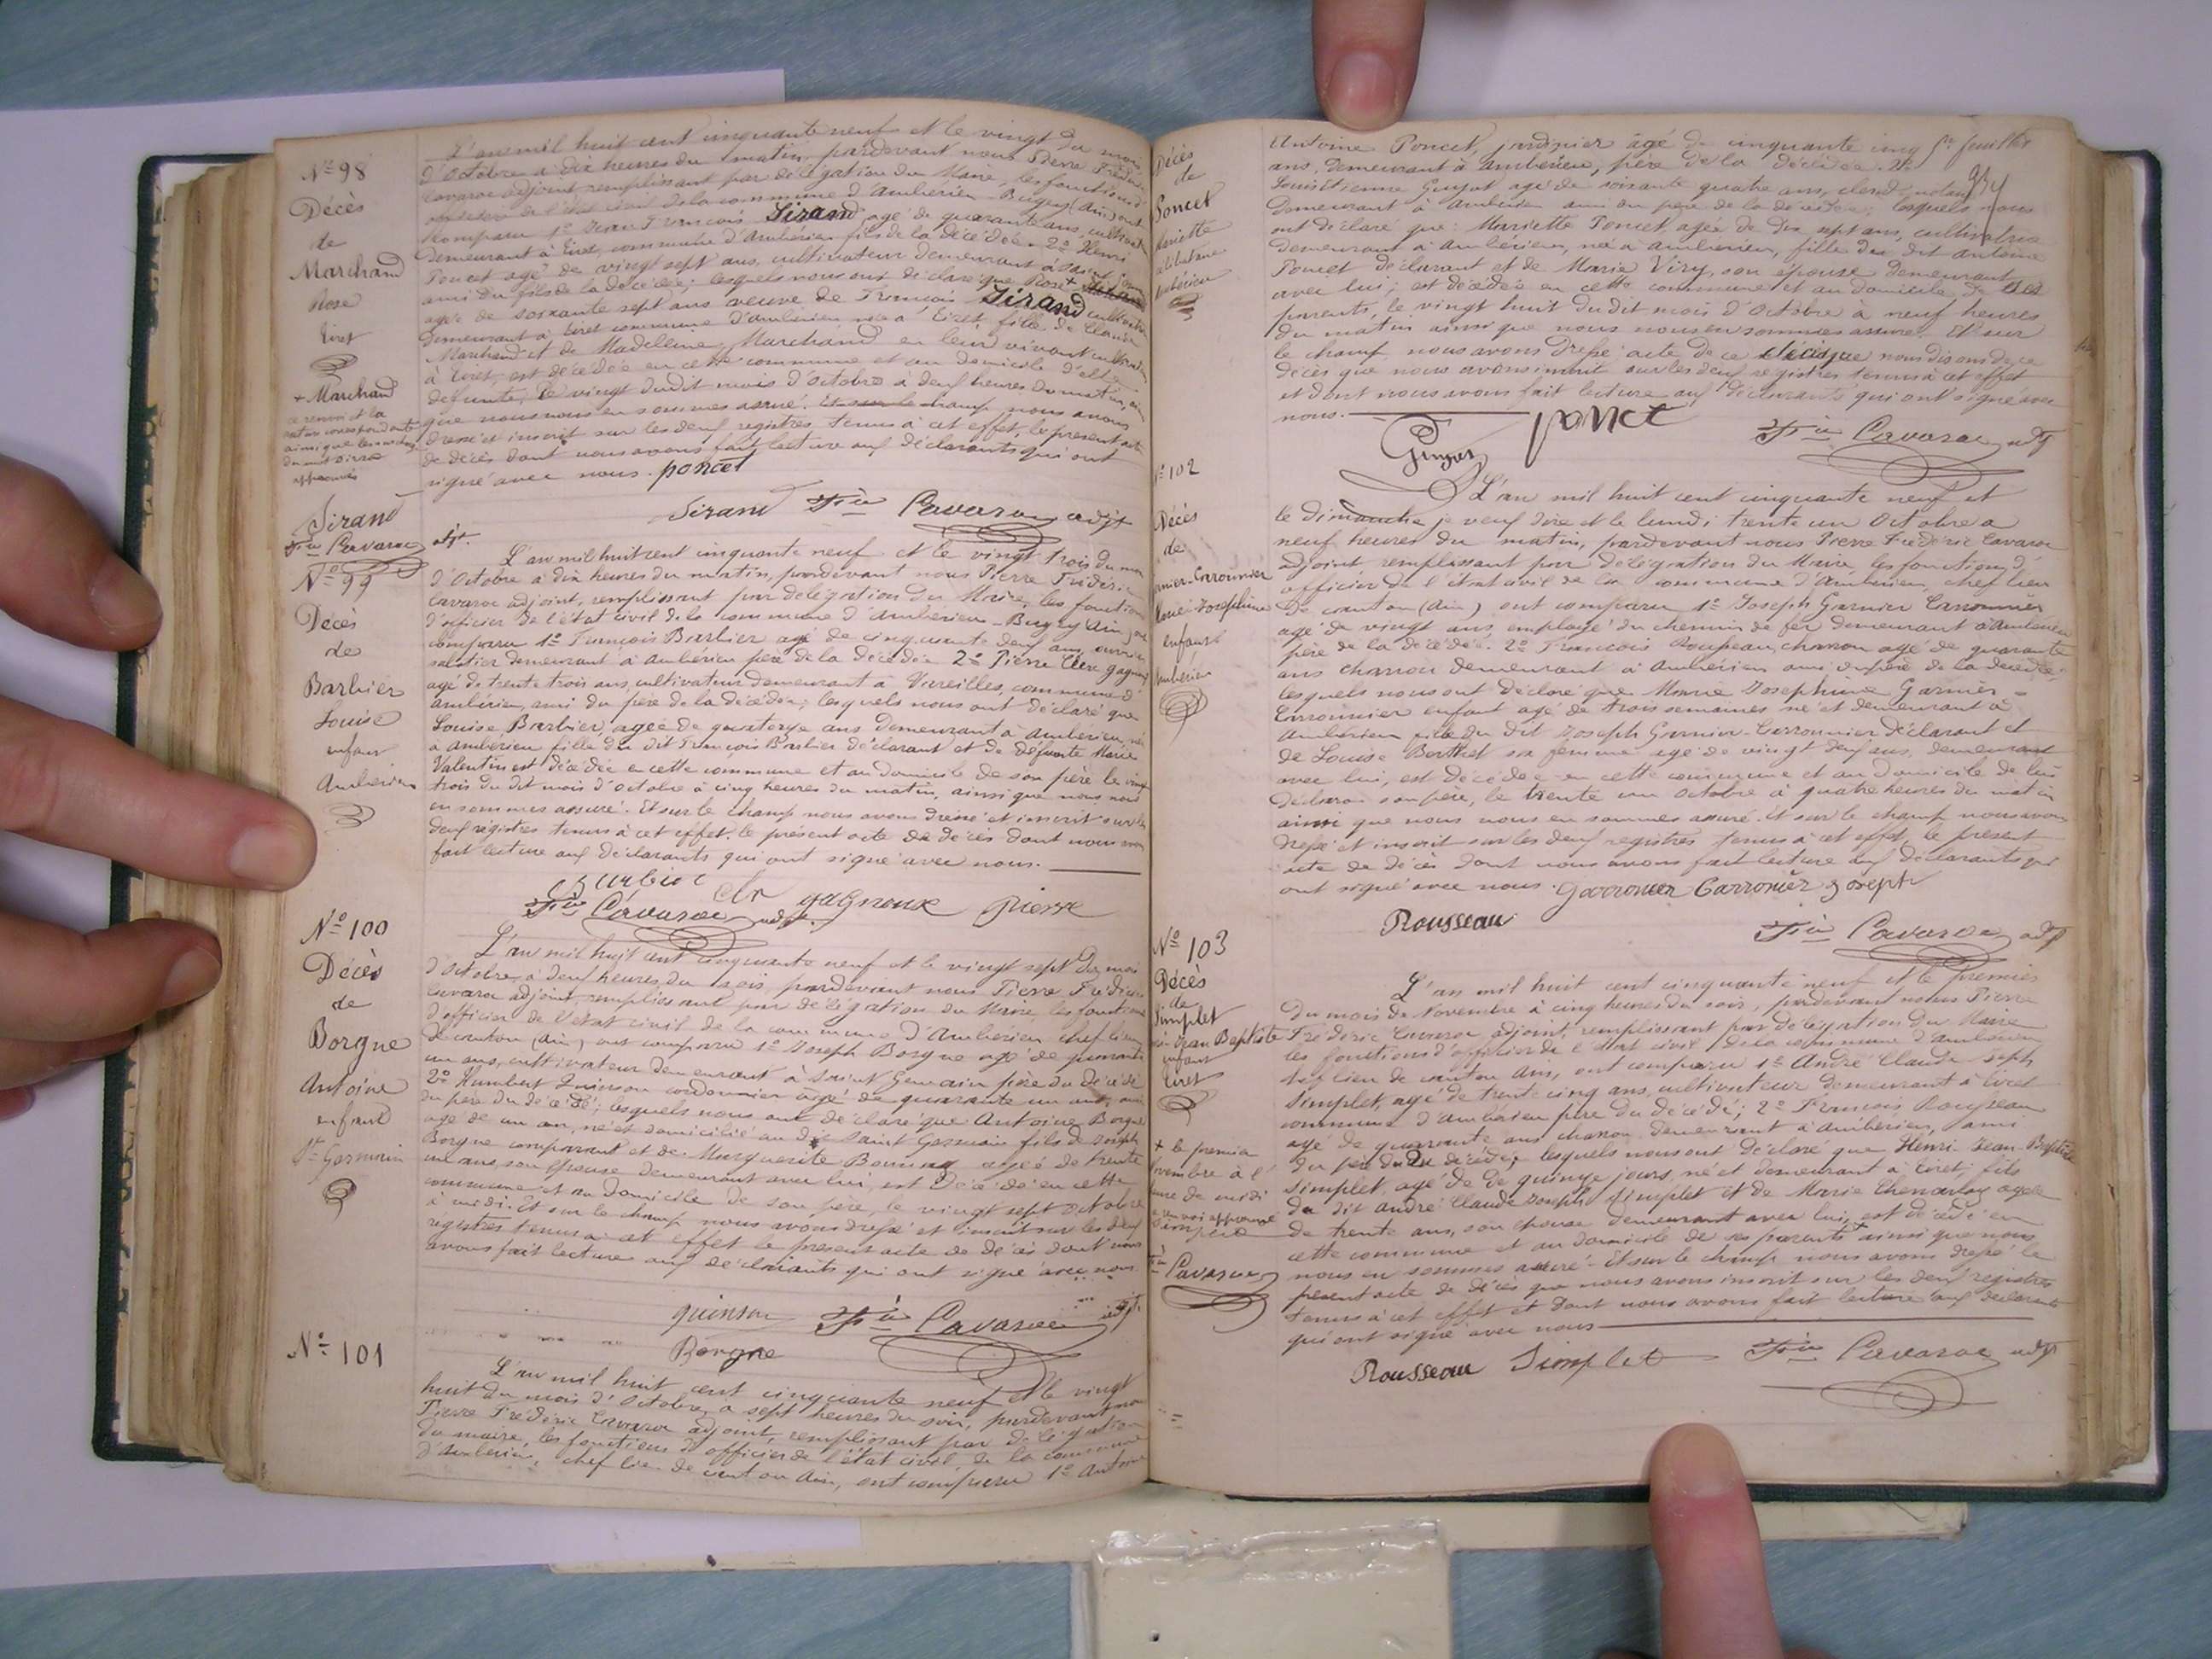 N° 98
Décès
de
Marchand
Rose
Tiret
+ Marchand
ce renvoi et la
approuvés
Sirand
Fic Cavaroc adjt.
L'an mil huit cent cinquante neuf et le vingt du mois
d'Octobre à dix heures du matin, pardevant nous Pierre Frédéric
Cavaroc adjoint remplissant par délégation du Maire, les fonctions d'
officier de l'état civil de la commune d'Ambérieu-Bugey (Ain) ont
comparu 1° Jean François Sirand agé de quarante ans, cultivateur
demeurant à Tiret, commune d'Ambérieu fils de la décédée 2° Henri
Poncet agé de vingt sept ans, cultivateur demeurant à Saint Germain
ami du fils de la décédée; lesquels nous ont déclaré que Rose +
agée de soixante sept ans veuve de François Sirand cultivatrice
demeurant à Tiret commune d'Ambérieu née à Tiret, fille de Claude
Marchand et de Madelleine Marchand en leur vivant cultivateurs
à Tiret, est décédée en cette commune et au domicile d'elle
défunte, le vingt dudit mois d'Octobre à deux heures du matin, ainsi
que nous nous en sommes assuré. Et sur le champ nous avons
dressé et inscrit sur les deux registres, tenus à cet effet, le présent acte
de décès dont nous avons fait lecture aux déclarants qui ont
signé avec nous. poncet
Sirand Fic Cavaroc adjt
N° 99
Décès
de
Barbier
Louise
enfant
Ambérieu
L'an mil huit cent cinquante neuf et le vingt trois du mois
d'Octobre à dix heures du matin, pardevant nous Pierre Frédéric
Cavaroc adjoint, remplissant par délégation du Maire, les fonctions
d'officier de l'état civil de la commune d'Ambérieu-Bugey (Ain) ont
comparu 1° François Barbier agé de cinquante deux ans, ouvrier
demeurant à Ambérieu père de la décédée 2° Pierre Clerc gagneux
agé de trente trois ans, cultivateur demeurant à Vareilles, commune d'
Ambérieu, ami du père de la décédée; lesquels nous ont déclaré que
Louise Barbier, agée de quatorze ans demeurant à Ambérieu, née
à Ambérieu fille du dit François Barbier déclarant et de défunte Marie
Valentin est décédée en cette commune et au domicile de son père le vingt
trois du dit mois d'Octobre à cinq heures du matin, ainsi que nous nous
en sommes assuré. Et sur le champ nous avons dressé et inscrit sur les
deux registres tenus à cet effet, le présent acte de décès dont nous avons
fait lecture aux déclarants qui ont signé avec nous.
Barbier Clr gagneux Pierre
Fic Cavaroc adjt.
N° 100
Décès
de
Borgne
Antoine
enfant
St. Germain
L'an mil huit cent cinquante neuf et le vingt sept du mois
d'Octobre, à deux heures du soir, pardevant nous Pierre Frédéric
Cavaroc adjoint, remplissant par délégation du Maire les fonctions
d'officier de l'état civil de la commune d'Ambérieu chef lieu
de canton (Ain) ont comparu 1° Joseph Borgne agé de quarante
un ans, cultivateur demeurant à Saint Germain père du décédé
2° Humbert Quinson cordonnier agé de quarante un ans, ami
du père du décédé; lesquels nous ont déclaré que Antoine Borgne
agé de un an, né et domicilié au dit Saint Germain fils de Joseph
Borgne comparant et de Marguerite agée de trente
un ans, son épouse demeurant avec lui, est décédé en cette
commune et au domicile de son père, le vingt sept Octobre
à midi. Et sur le champ nous avons dressé et inscrit sur les deux
registres tenus à cet effet le présent acte de décès dont nous
avons fait lecture aux déclarants qui ont signé avec nous
quinson Fic Cavaroc adjt.
Borgne
N° 101
L'an mil huit cent cinquante neuf et le vingt
huit du mois d'Octobre, à sept heures du soir, pardevant nous
Pierre Frédéric Cavaroc adjoint, remplissant par délégation
du maire, les fonctions d'officier de l'état civil, de la commune
d'Ambérieu, chef lieu de canton Ain, ont comparu 1° Antoine
Décès
de
Poncet
Mariette
célibataire
Ambérieu
Antoine Poncet, jardinier agé de cinquante cinq
ans, demeurant à Ambérieu, père de la décédée. 2°
Louis Etienne Guyot agé de soixante quatre ans, clerc de notaire
demeurant à Ambérieu ami du père de la décédée; lesquels nous
ont déclaré que: Mariette Poncet agée de dix sept ans, cultivatrice
demeurant à Ambérieu, née à Ambérieu, fille du dit Antoine
Poncet déclarant et de Marie Viry, son épouse demeurant
avec lui; est décédée en cette commune et au domicile de ses
parents, le vingt huit dudit mois d'Octobre à neuf heures
du matin ainsi que nous nous en sommes assuré. Et sur
le champ, nous avons dressé acte de ce décès que nous disons de ce
décès que nous avons inscrit sur les deux registres tenus à cet effet
et dont nous avons fait lecture aux déclarants qui ont signé avec
nous.
Guyot poncet Fic Cavaroc adjt
N° 102
Décès
de
Garnier-Carronnier
Marie Josephine
enfant
Ambérieu
L'an mil huit cent cinquante neuf et
le dimanche je veux dire et le lundi trente un Octobre à
neuf heures du matin, pardevant nous Pierre Frédéric Cavaroc
adjoint, remplissant par délégation du Maire, les fonctions d'
officier de l'état civil de la commune d'Ambérieu, chef lieu
de canton (Ain) ont comparu 1° Joseph Garnier Carronnier
agé de vingt ans employé du chemin de fer demeurant à Ambérieu
père de la décédée. 2° François Rousseau, charron agé de quarante
ans charron demeurant à Ambérieu ami du père de la décédée;
lesquels nous ont déclaré que Marie Josephine Garnier-
Carronnier enfant agé de trois semaines né et demeurant à
Ambérieu fille du dit Joseph Garnier-Carronnier déclarant et
de Louise Berthet sa femme agé de vingt deux ans, demeurant
avec lui, est décédée en cette commune et au domicile de lui
son père, le trente un Octobre à quatre heures du matin
ainsi que nous nous en sommes assuré. Et sur le champ nous avons
dressé et inscrit sur les deux registres tenus à cet effet, le présent
acte de décès dont nous avons fait lecture aux déclarants qui
ont signé avec nous. Carronier Joseph
Rousseau Fic Cavaroc adjt
N° 103
Décès
de
Simplet
Henri Jean Baptiste
enfant
Tiret
+ le premier
novembre à l'
heure de midi
renvoi approuvé
Simplet
Fic Cavaroc
L'an mil huit cent cinquante neuf et le premier
du mois de Novembre à cinq heures du soir, pardevant nous Pierre
Frédéric Cavaroc adjoint, remplissant par délégation du Maire
les fonctions d'officier de l'état civil de la commune d'Ambérieu
chef lieu de canton Ain, ont comparu 1° André Claude Joseph
Simplet, agé de trente cinq ans, cultivateur demeurant à Tiret
commune d'Ambérieu père du décédé; 2° François Rousseau
agé de quarante ans charron demeurant à Ambérieu, ami
du père du décédé; lesquels nous ont déclaré que Henri Jean-Baptiste
Simplet, agé de quinze jours, né et demeurant à Tiret, fils
du dit André Claude Joseph Simplet et de Marie Chenavaz agée
de trente ans, son épouse demeurant avec lui, est décédé en
cette commune et au domicile de ses parents + ainsi que nous
nous en sommes assuré. Et sur le champ nous avons dressé le
présent acte de décès que nous avons inscrit sur les deux registres
tenus à cet effet et dont nous avons fait lecture aux déclarants
qui ont signé avec nous
Rousseau Simplet Fic Cavaroc adjt